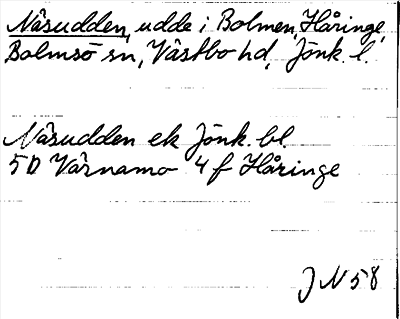 Näsudden, udde i Bolmen, Håringe,
Bolmsö sn, Västbo hd, Jönk. l.
Näsudden ek Jönk. bl.
5D Värnamo 4 f Håringe
J N 58